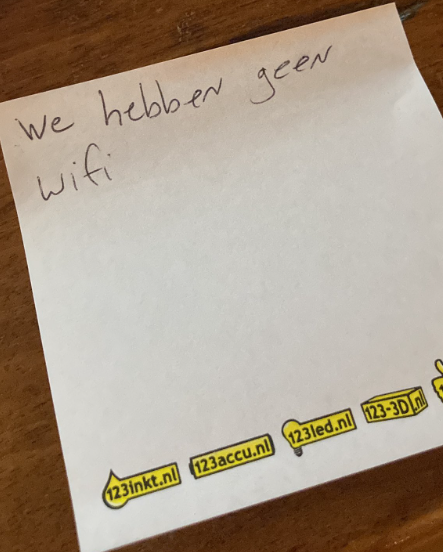 We hebben geen
wifi
123inkt.nl 123accu.nl 123led.nl 123-3D.nl